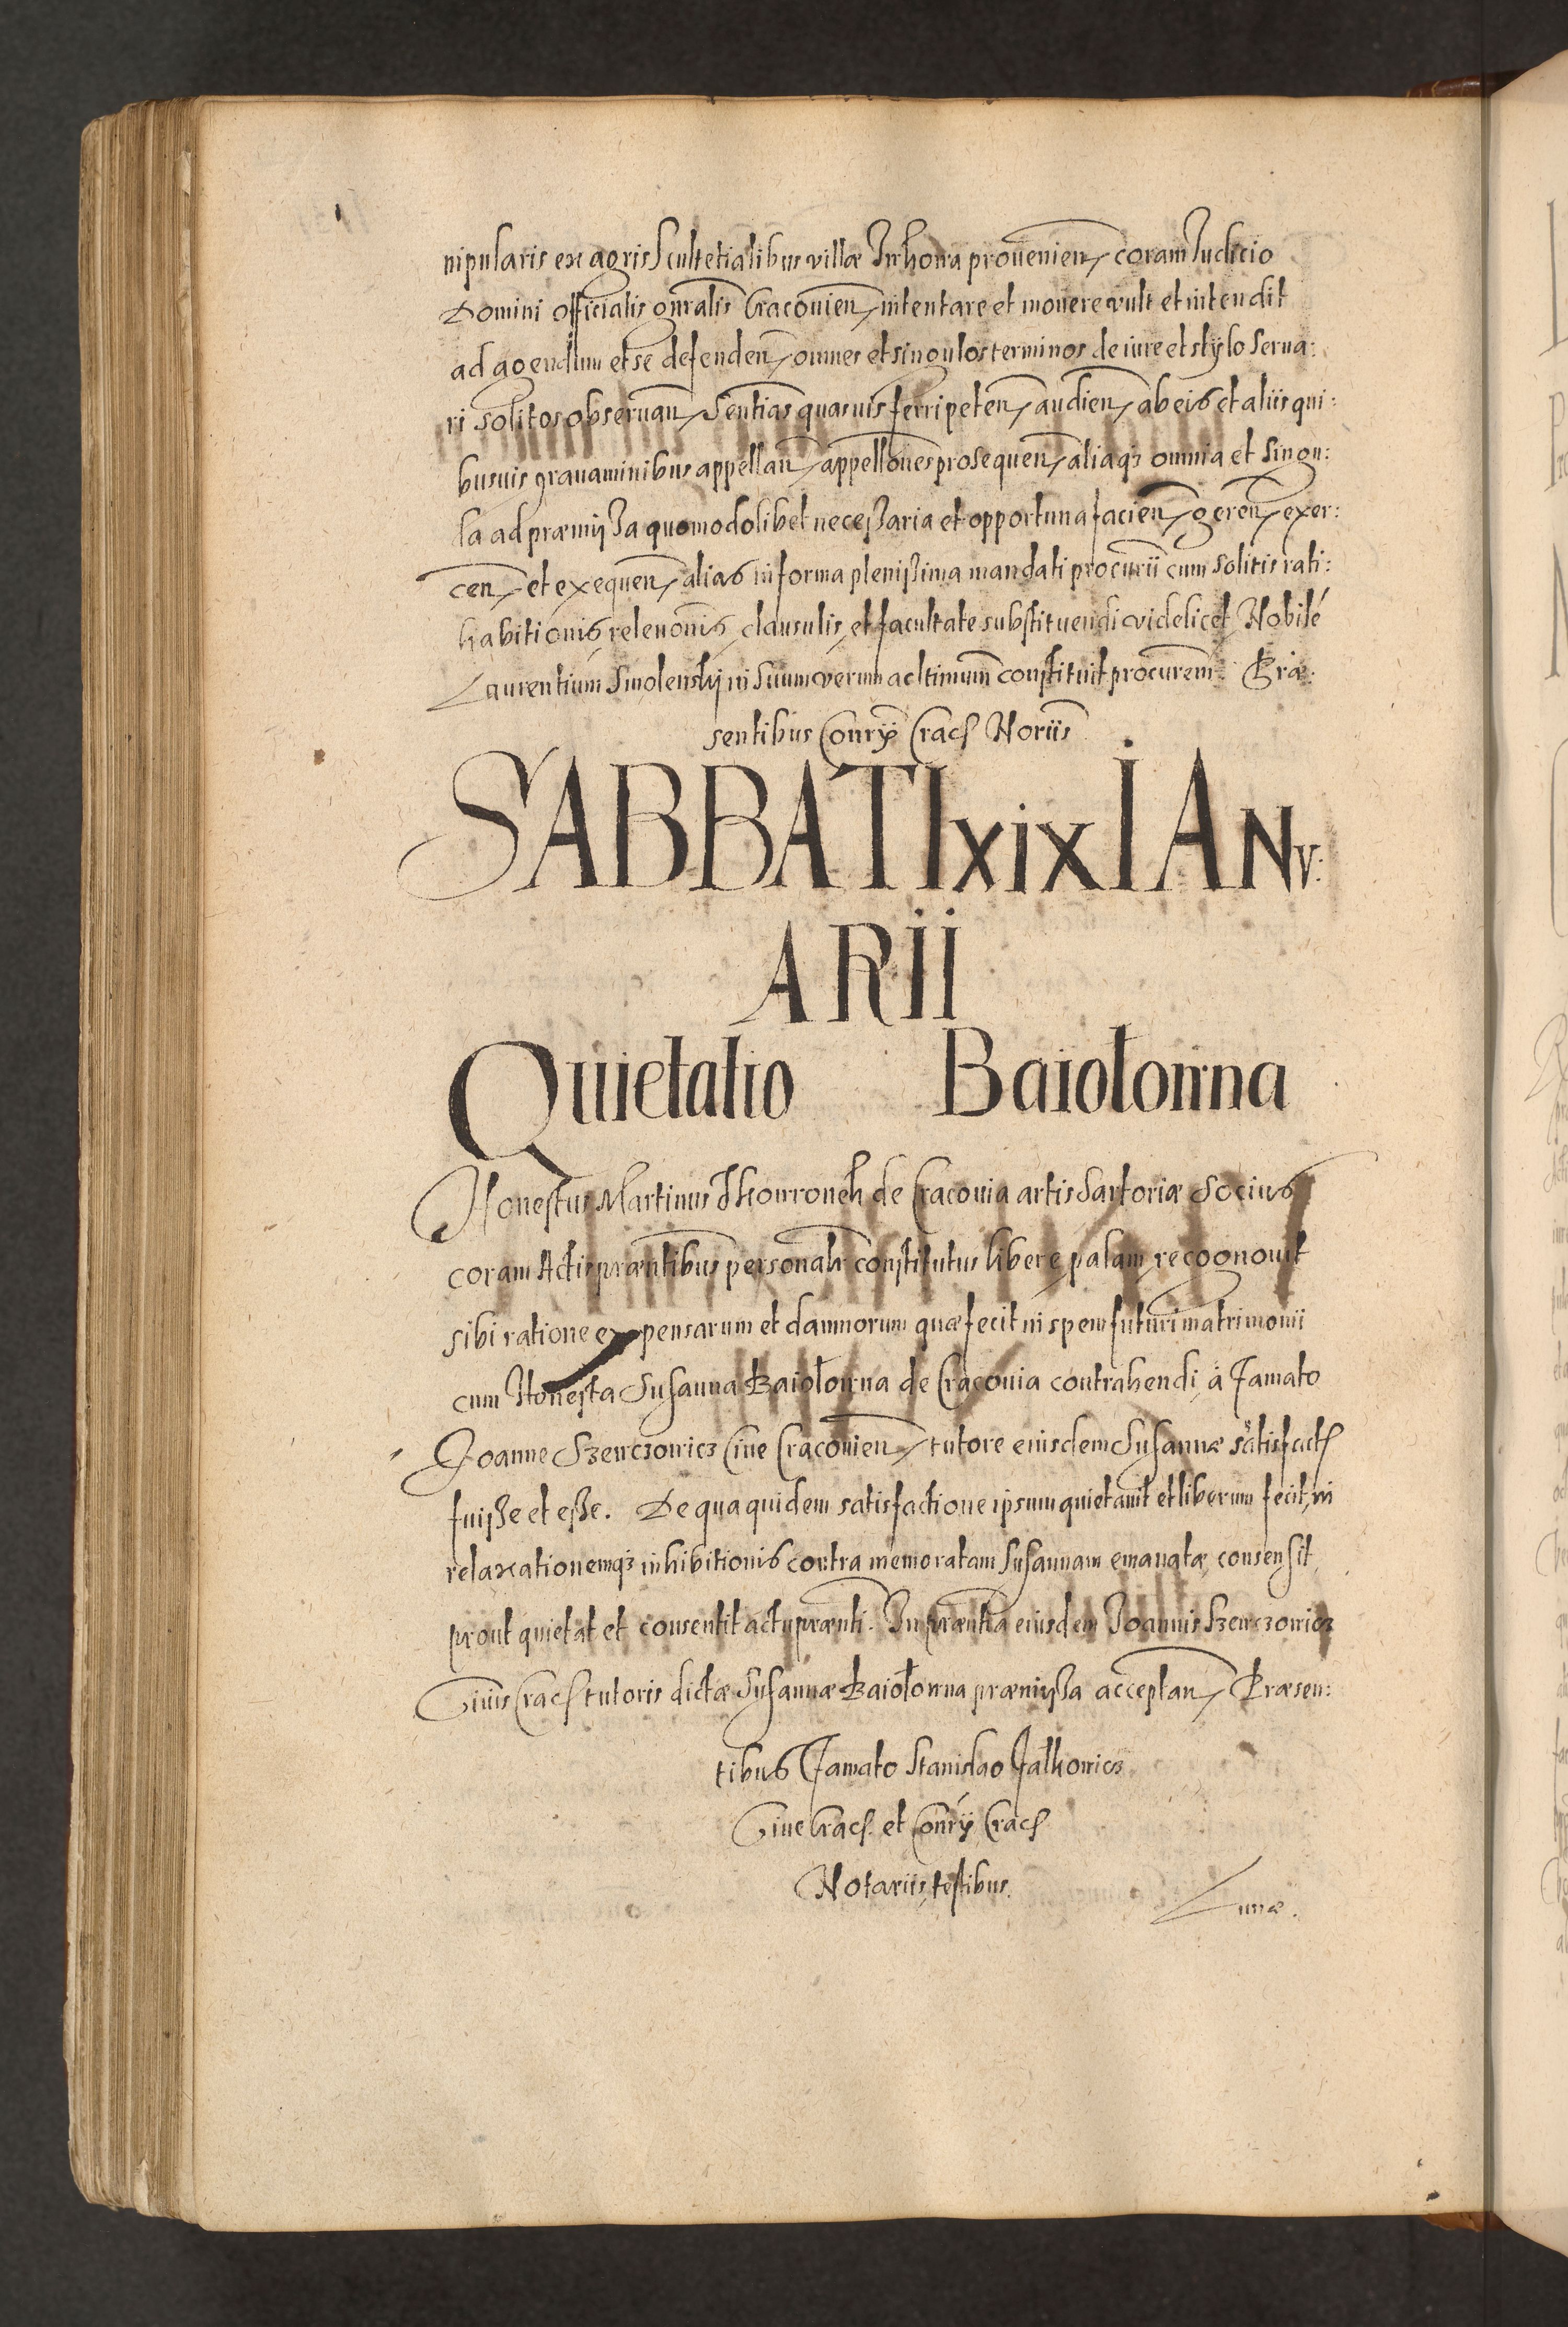 nipularis ex agris Scultetialibus villæ Jurkowa prouenien, coram Judicio
Domini officialis gnralis Cracouien, intentare et mouere vult et intendit
ad agendum et se defenden, omnes et singulos terminos de iure et stylo serua:
ri solitos obseruan, Sentias quasuis ferri peten, audien, ab eis et aliis qui:
busuis grauaminibus appellan, appellones prosequen, aliaq3 omnia et singu:
la ad præmißa quomodolibet neceßaria et opportuna facien, geren, exer:
cen, et exequen, alias in forma plenißima mandati procurii cum solitis rati:
habitionis, releuonis, clausulis, et facultate substituendi videlicet, Nobilé
Laurentium Smolenskij in suum verum ac ltimum constituit procurem. Præ:
sentibus Conrÿ Crac Noriis
SABBATI xix IANV:
ARii
Quietatio Baiołowna
Honestus Martinus Skowronek de Cracouia artis Sartoriæ Socius
coram Actis præntibus personalr constitutus libere, palam, recognouit
sibi ratione expensarum et damnorum quæ fecit in spem futuri matrimonii
cum Honesta Susanna Baiołowna de Cracouia contrahendi, à Famato
Joanne Szewczowicz Ciue Cracouien, tutore eiusdem Susannæ satisfact
fuiße et eße. De qua quidem satisfactione ipsum quietauit et liberum fecit, in
relaxationemq3 inhibitionis contra memoratam Susannam emanatæ consensit
prout quietat et consentit actu prænti. In præntia eiusdem Joannis Szewczowicz
Ciuis Crac tutoris dictæ Susannæ Baiołowna præmißa acceptan, Præsen:
tibus Famato Stanislao Jalkowicz
Ciue Crac. et Conrÿ Crac
Notariis, testibus.
Lunæ.